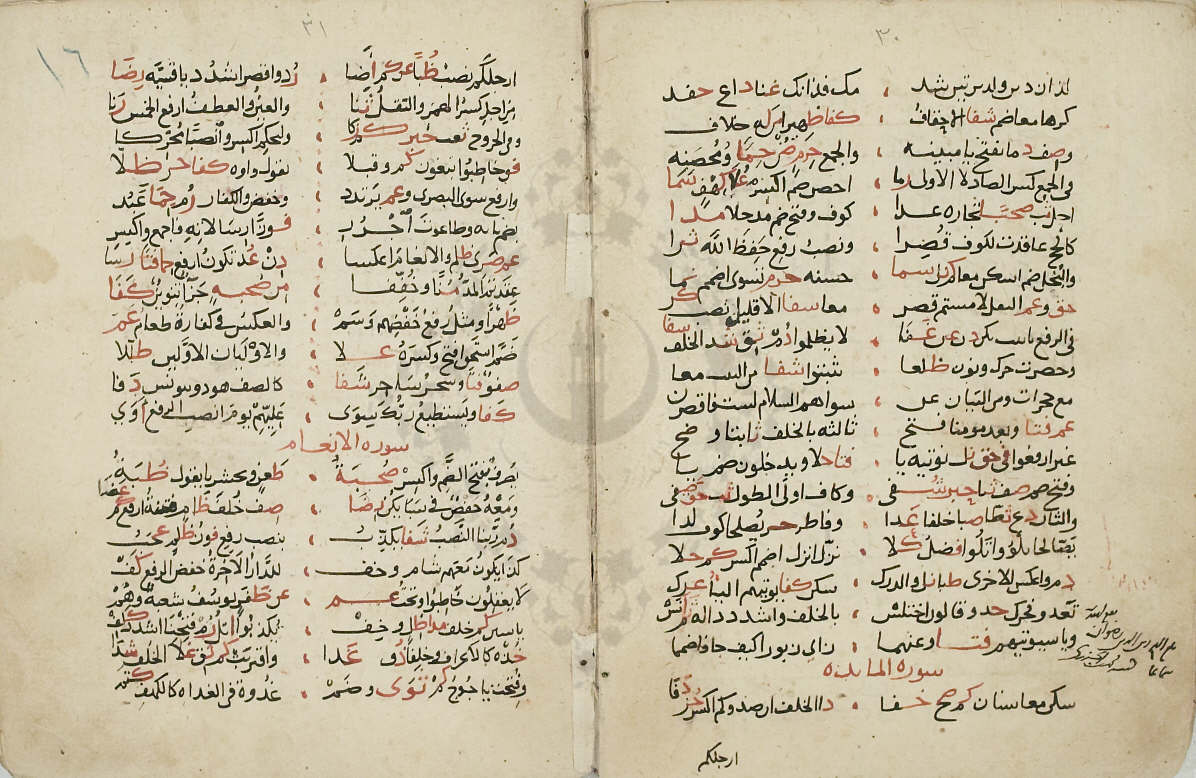 ٣٠
لذان ذين ولدين تين شد ، مك فذانك غنا داع حفد
كرها معا ضم شفا الاحقاف ، كفا ظهيرا من له خلاف
وصف دما بفتح يا مبينه ، والجمع حرم صن حما ومحصنه
في الجمع كسر الصاد لا الاولى رما ، احصن ضم اكسر علا كهف سما
احل ثب صحبا تجارة عدا ، كوف وفتح ضم مدخلا مدا
كالحج عاقدت لكوف قصرا ، ونصب رفع حفظ الله ثرا
والبخل ضم اسكن معا كم نل سما ، حسنه حرم تسوى اضمم نما
حق وعم الثقل لامستم قصر ، معا شفا الا قليلا نصب كر
في الرفع تانيث يكن دن عن غفا ، لا يظلموا دم ثق شذا الخلف شفا
وحصرت حرك ونون ظلعا ، تثبتوا شفا من الثبت معا
مع حجرات ومن البيان عن ، سواهم السلام لست فاقصرن
عم فتا وبعد مومنا فتح ، ثالثه بالخلف ثابتا وضح
غير ارفعوا في حق نل نوتيه يا ، فتا حلا ويدخلون ضم يا
وفتح ضم صف ثنا حبر شفي ، وكاف اولى الطول ثب حق صفي
والثان دع ثطا صبا خلفا غدا ، وفاطر حز يصلحا كوف لدا
يصالحا تلووا تلوا فضل كلا ، نزل انزل اضمم اكسر كم حلا
دم واعكس الاخرى ظبا نل والدرك ، سكن كفا نوتيهم الياء عرك
تعدوا فحرك جد وقالون اختلس ، بالخلف واشدد داله ثم انس
ويا سيوتيهم فتا وعنهما ، زاي زبورا كيف جا فاضمما
سورة المايدة
سكن معا شنان كم صح خفا ، ذا الخلف ان صدوكم اكسر حز دفا
ارجلكم
٣١
١٦
ارجلكم نصب ظبا عن كم اضا ، رد واقصر اشدد يا قسية رضا
من اجل كسر الهمز والنقل ثنا ، والعين والعطف ارفع الخمس رنا
وفي الجروح ثعب حبر كم ركا ، وليحكم اكسر وانصبا محركا
فق خاطبوا تبغون كم وقبلا ، يقول واوه كفا حز ظلا
وارفع سوى البصري وعم يرتدد ، وخفض والكفار رم حما عبد
بضم بائه وطاغوت اجرر ، فوزا رسالاته فاجمع واكسر
عم صرى ظلم والانعام اعكسا ، دن عد تكون ارفع حما فتا رسا
عقدتم المد منا وخففا ، من صحبه جزاء تنوين كفا
ظهرا ومثل رفع خفضهم وسم ، والعكس في كفارة طعام عم
ضم استحق افتح وكسره علا ، والاوليان الاولين ظللا
صفو فتا وسحر ساحر شفا ، كالصف هود وبيونس دفا
كفا ويستطيع ربك سوى ، عليهم يوم انصب الرفع اوى
سورة الانعام
يصرف بفتح الضم واكسر صحبة ، ظعن ويحشر يا يقول ظبة
ومعه حفص في سبا يكن رضا ، صف خلف ظام فتنة ارفع كم عضا
دم ربنا النصب شفا نكذب ، بنصب رفع فوز ظلم عجب
كذا يكون معهم شام وخف ، للدار الاخرة خفض الرفع كف
لا يعقلون خاطبوا وتحت عم ، عن ظفر يوسف شعبة وهم
يس كم خلف مدا ظل وخف ، يكذبوا اتل رم فتحنا اشدد كلف
خذه كالاعراف وخلفا ذق غدا ، واقتربت كم ثق غلا الخلف شدا
وفتحت ياجوج كم ثوى وضم ، غدوة في الغداة كالكهف كتم